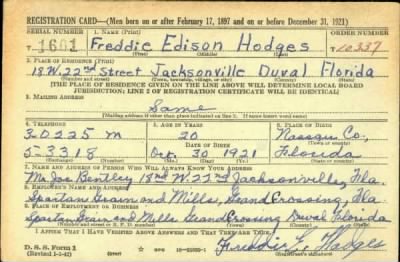 REGISTRATION CARD—(Men born on or after February 17, 1897 and on or before December 31, 1921)
SERIAL NUMBER 1. NAME (Print) ORDER NUMBER
T 1601 Freddie Edison Hodges T10337
(First) (Middle) (Last)
2. PLACE OF RESIDENCE (Print)
18 W. 22nd Street Jacksonville Duval Florida
(Number and street) (Town, township, village, or city) (County) (State)
[THE PLACE OF RESIDENCE GIVEN ON THE LINE ABOVE WILL DETERMINE LOCAL BOARD
JURISDICTION; LINE 2 OF REGISTRATION CERTIFICATE WILL BE IDENTICAL]
3. MAILING ADDRESS
Same
[Mailing address if other than place indicated on line 2. If same insert word same]
4. TELEPHONE 5. AGE IN YEARS 6. PLACE OF BIRTH
3-0225 M 20 Nassau Co.
DATE OF BIRTH (Town or county)
5-3318 30 1921 Florida
(Exchange) (Number) (Mo.) (Day) (Yr.) (State or country)
7. NAME AND ADDRESS OF PERSON WHO WILL ALWAYS KNOW YOUR ADDRESS
Mr. Joe Bentley, 18 W 22nd Jacksonville, Fla.
8. EMPLOYER'S NAME AND ADDRESS
Spartan Grain and Mills, Grand Crossing, Fla
9. PLACE OF EMPLOYMENT OR BUSINESS
Spartan Grain and Mills Grand Crossing Duval Florida
(Number and street or R. F. D. number) (Town) (County) (State)
I AFFIRM THAT I HAVE VERIFIED ABOVE ANSWERS AND THAT THEY ARE TRUE.
D. S. S. Form 1
(Revised 1-1-42) Freddie E. Hodges